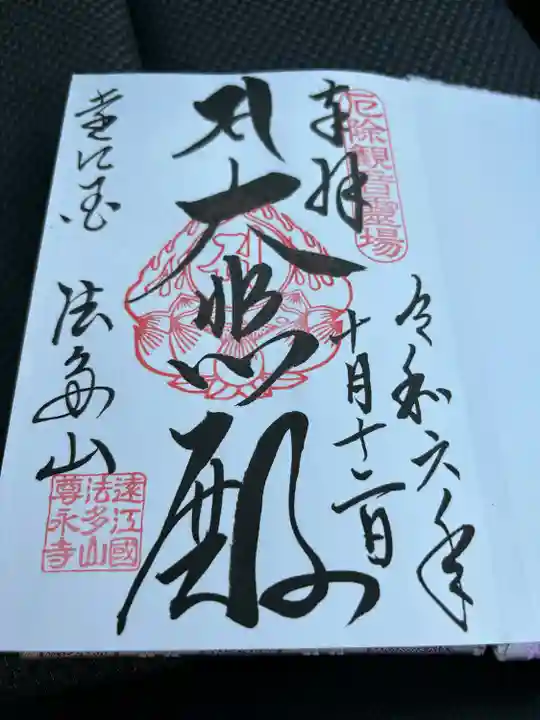 厄除觀音靈場
奉拝
令和六年
十月十二日
大悲殿
遠江国 法多山
遠江國
法多山
尊永寺